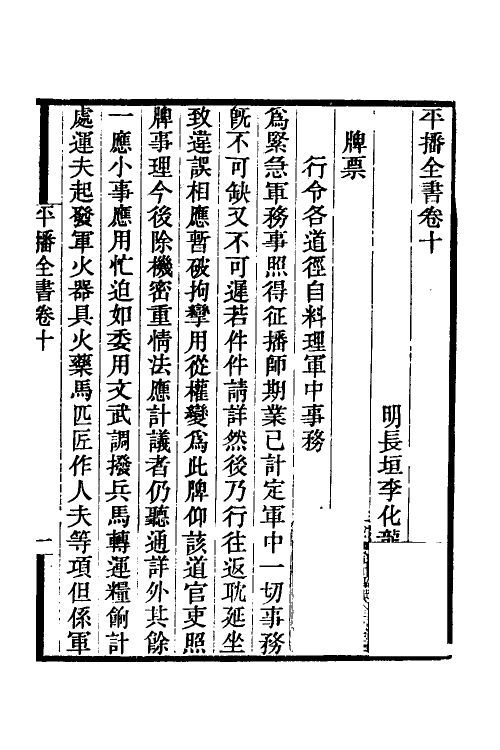 平播全書卷十
明長垣李化龍
牌票
行令各道徑自料理軍中事務
爲緊急軍務事照得征播師期業已計定軍中一切事務
旣不可缺又不可遲若件件請詳然後乃行往返耽延坐
致違誤相應暫破拘攣用從權變爲此牌仰該道官吏照
牌事理今後除機密重情法應計議者仍聽通詳外其餘
一應小事應用忙迫如委用文武調撥兵馬轉運糧餉計
處運夫起發軍火器具火藥馬匹匠作人夫等項但係軍
平播全書卷十
一